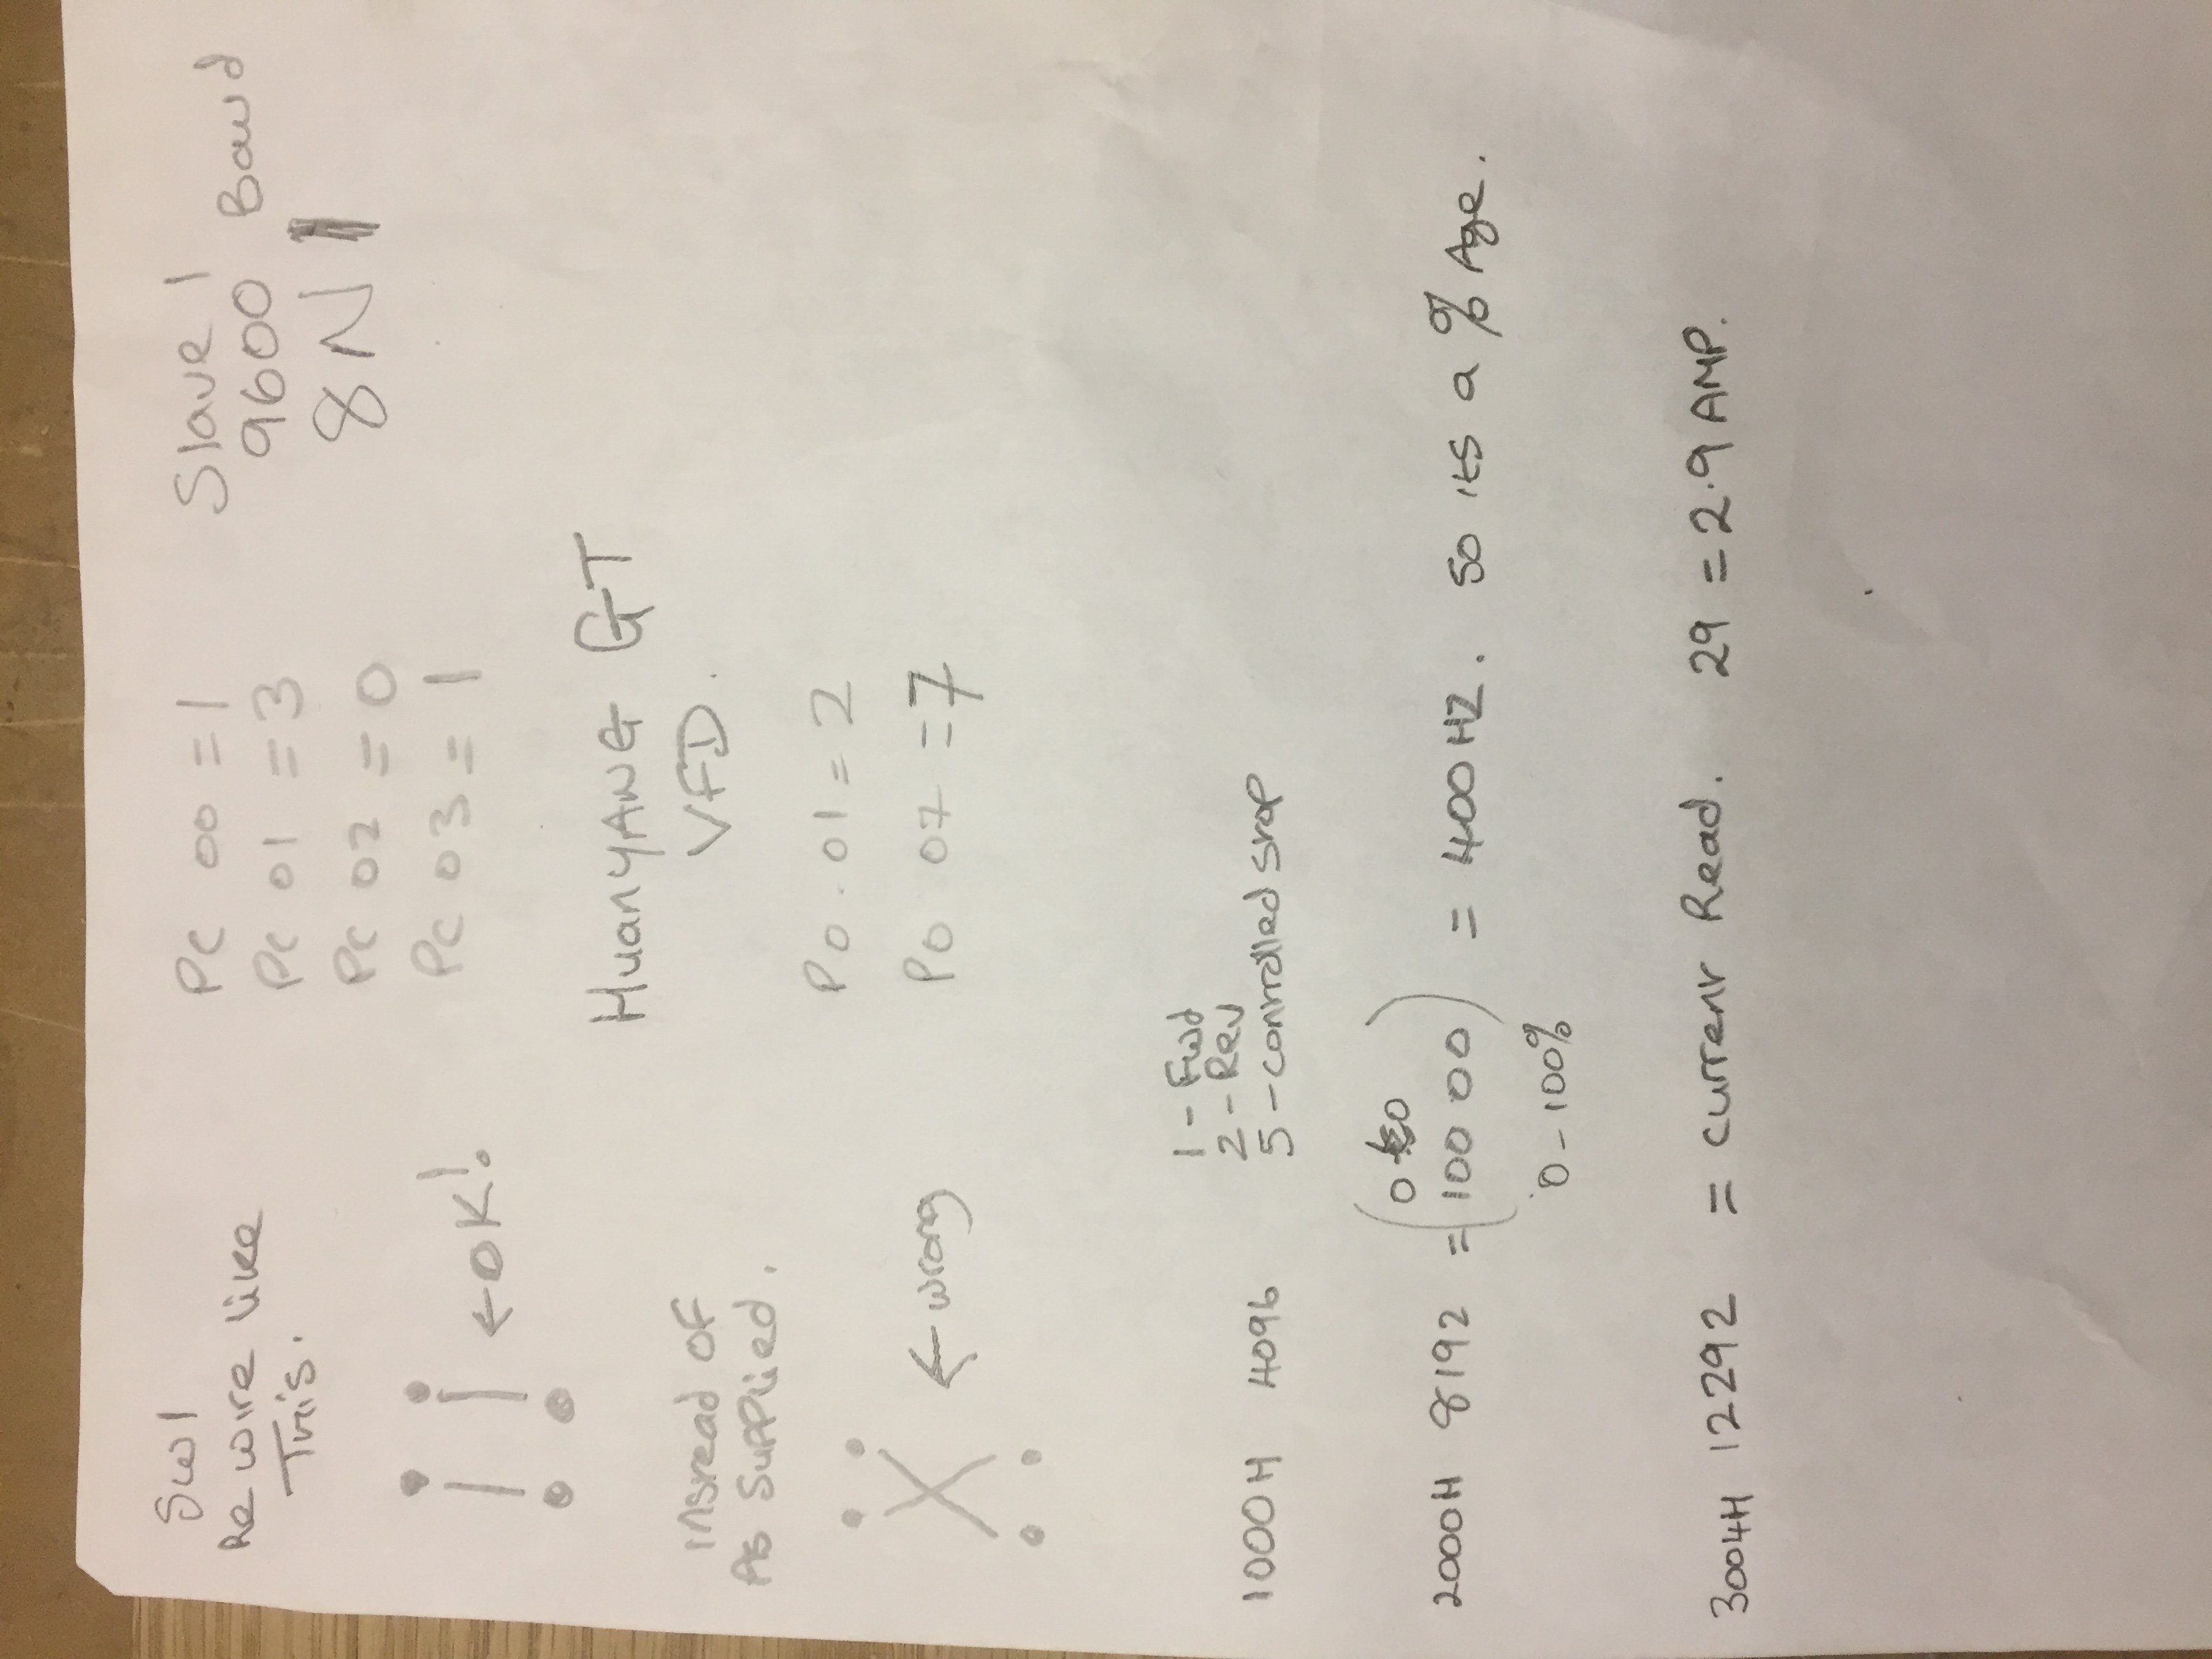 SW1
Re wire like
This.
← OK!
insread of
As Supplied.
← wrong
PC 00 = 1
PC 01 = 3
PC 02 = 0
PC 03 = 1
Slave 1
9600 Baud
8 N 1
HuanYANG GT
VFD.
P0.01 = 2
P0 07 = 7
1000H 4096
1 - Fwd
2 - Rev
5 - conrrolled srop
2000H 8192 = (0 to 10000) = 400HZ. So its a % Age.
0 - 100%
3004H 12292 = Currenr Read. 29 = 2.9 AMP.